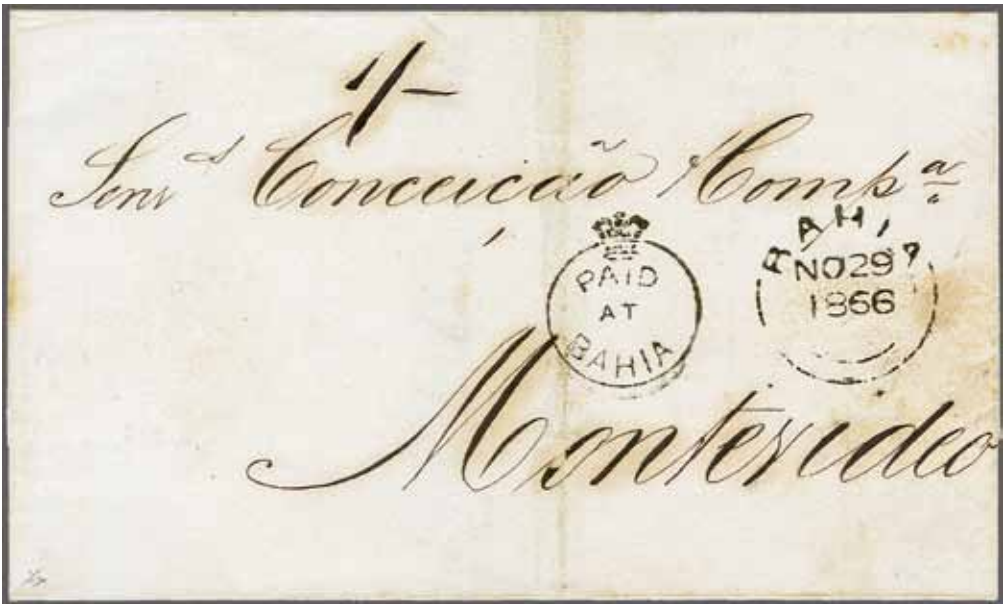 1/-
Senr.s Conceição & Comp.a
PAID
AT
BAHIA
BAHIA
NO 29
1866
Montevideo